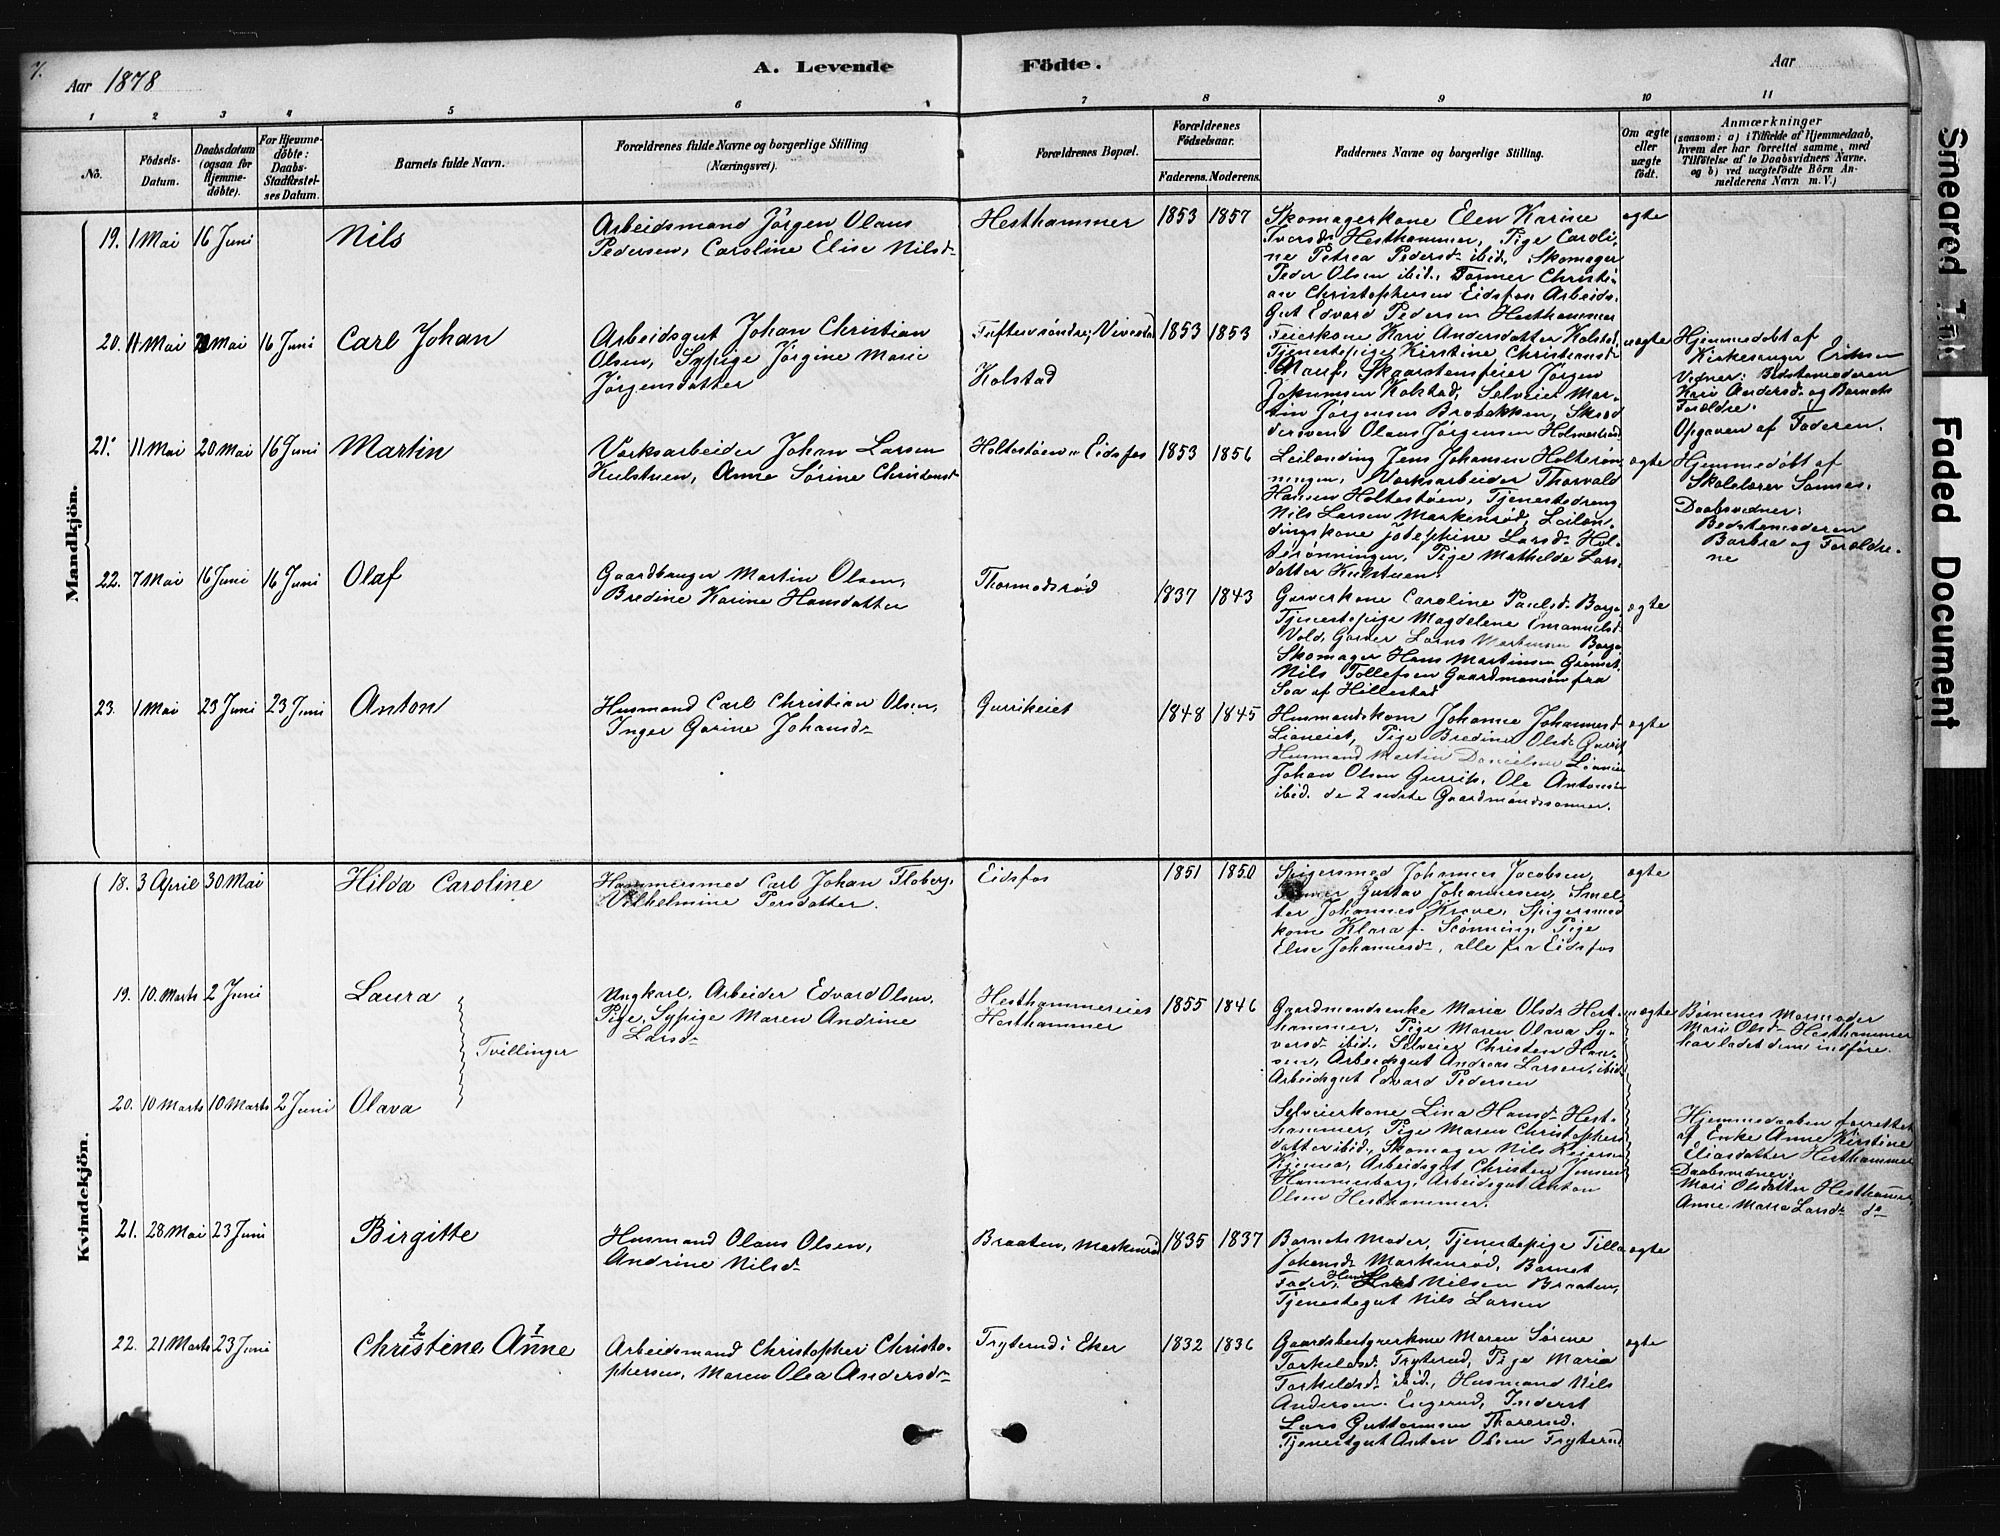 7.
Aar 1878
A. Levende Födte.
Aar
1 2 3 4 5 6 7 8 9 10 11
No.
Födsels-Datum.
Daabsdatum (ogsaa för Hjemme-döbte).
For Hjemme-döbte: Daabs-Stadfæstel-ses Datum.
Barnets fulde Navn.
Forældrenes fulde Navne og borgerlige Stilling (Næringsvei).
Forældrenes Bopæl.
Forældrenes Födselsaar.
Faderens. Moderens.
Faddernes Navne og borgerlige Stilling.
Om ægte eller uægte födt.
Anmærkninger
(saasom: a) i Tilfælde af Hjemmedaab,
hvem der har forrettet samme, med
Tilföielse af to Daabsvidners Navne.
og b) ved uægtefödte Börn An-
melderens Navn m. V.)
Mandkjön.
19. 1 Mai 16 Juni Nils
Arbeidsmand Jörgen Olaus
Pedersen, Caroline Elise Nilsd.
Hesthammer 1853 1857
Skomagerkone Elen Karine
Iversd. Hesthammer, Pige Caroli-
ne Petrea Pedersd. ibid, Skomager
Peder Olsen ibid, Former Christi-
an Christophersen Eidsfos Arbeids-
Gut Edvard Pedersen Hesthammer
ægte
20. 11 Mai Mai 16 Juni Carl Johan
Arbeidsgut Johan Christian
Olsen, Sypige Jörgine Marie
Jörgensdatter
Tufte söndre, Vivestad
Kolstad
1853 1853
Feierkone Kari Andersdatter Kolstad,
Tjenestepige Kirstine Christiansd.
Skaarstensfeier Jörgen
Kolstad, Selveier Mar-
tin Jörgensen Brobakken, Skræd
dersvend Olaus Jörgensen Holmestrand
uægte
Hjemmedöbt af
Kirkesanger Eriksen
Vidner: Bedstemoderen
Kari Andersd. og Barnets
Foreldre.
Opgaven af Faderen.
21. 11 Mai 20 Mai 16 Juni Martin
Verksarbeider Johan Larsen
Kulstuen, Anne Sörine Christensd.
Holtestöen, Eidsfos 1853 1856
Leilending Jens Johansen Holterön
ningen, Verksarbeider Thorvald
Hansen Holtestöen, Tjenestedreng
Nils Larsen Markenröd, Leilen-
dingskone Josephine Larsd. Hol-
terönningen, Pige Mathilde Lars-
datter Kulstuen.
ægte
Hjemmedöbt af
Skolelærer Sannes.
Daabsvidner:
Bedstemoderen
Barbra og Foreldre-
ne
22. 7 Mai 16 Juni 16 Juni Olaf
Gaardbruger Martin Olsen,
Bredine Karine Hansdatter
Thormodsröd 1837 1843
Garverkone Caroline Paulsd. Borge
Tjenestepige Magdelene Emanuelsd.
Vold, Garver Lorns Martinsen Borge
Skomager Hans Martinsen
Nils Tollefsen Gaardmandsön fra
Soa af Hillestad
ægte
23. 1 Mai 23 Juni 23 Juni Anton
Husmand Carl Christian Olsen,
Inger Gorine Johansd.
Gurrikeiet 1848 1845
Husmandskone Johanne Johannesd.
Lianeiet, Pige Bredine Olsd. Gurrik
Husmand Martin Danielsen
Johan Olsen Gurrik, Ole Antonsen
ibid. de 2 sidste Gaardmandssönner.
ægte
Kvindekjön.
18. 3 April 30 Mai Hilda Caroline
Hammersmed Carl Johan Floberg,
Vilhelmine Persdatter.
Eidsfos 1851 1850
Spigersmed Johannes Jacobsen,
Gustav Johannesen, Smel-
ter Johannes Krove, Spigersmed
kone Klara f. Scönning, Pige
Elise Johannesd., alle fra Eidsfos
ægte
19. 10. Marts 2 Juni Laura
Tvillinger
Ungkarl, Arbeider Edvard Olsen,
Pige, Sypige Maren Andrine
Larsd.
Hesthammereiet
Hesthammer
1855 1846
Gaardmandsenke Maria Olsd. Hest-
hammer, Pige Maren Olava Sy-
versd. ibid, Selveier Christen Han-
sen, Arbeidsgut Andreas Larsen, ibid
Arbeidsgut Edvard Pedersen
uægte
Börnenes Mormoder
Mari Olsd. Hesthammer
har ladet dem indföre.
20. 10 Marts 10 Marts 2 Juni Olava
Selveierkone Lina Hansd. Hest-
hammer, Pige Maren Christophers
datter ibid, Skomager Nils
Arbeidsgut Christen Jensen
Hammerborg, Arbeidsgut Anton
Olsen Hesthammer.
Hjemmedaaben forrettet
af Enke Anne Kirstine
Eliasdatter Hesthammer
Daabsvidner:
Mari Olsdatter Hesthammer,
Anne Maria Larsd. do
21. 28 Mai 23 Juni Birgitte
Husmand Olaus Olsen,
Andrine Nilsd.
Braaten, Markenröd 1835 1837
Barnets Moder, Tjenestepige Tilla
Johansd. Markenröd, Barnet
Fader, Nilsen Braaten,
Tjenestegut Nils Larsen
ægte
22. 21 Marts 23 Juni Christine Anne
2 1
Arbeidsmand Christopher Christo-
phersen, Maren Olea Andersd.
Tryterud i Eker 1832 1836
Gaardbestyrerkone Maren Sörene
Torkildsd. Tryterud, Pige Maria
Torkildsd. ibid, Husmand Nils
Andersen Engerud, Inderst
Lars Guttormsen Thorerud.
Tjenestgut Anton Olsen Tryterud
ægte
Smeared Ink
Faded Document